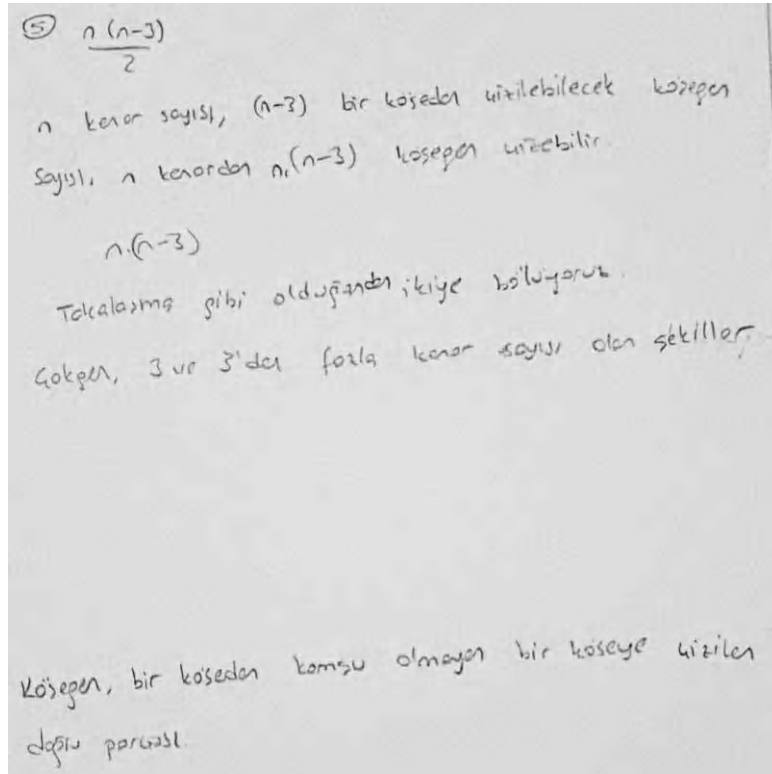 ⑤ n (n-3)
2
n kenar sayısı, (n-3) bir köşeden çizilebilecek köşegen
sayısı, n kenardan n.(n-3) köşegen çizebilir.
n.(n-3)
Tokalaşma gibi olduğundan ikiye bölüyoruz.
Çokgen, 3 ve 3'den fazla kenar sayısı olan şekiller.
Köşegen, bir köşeden komşu olmayan bir köşeye çizilen
doğru parçası.